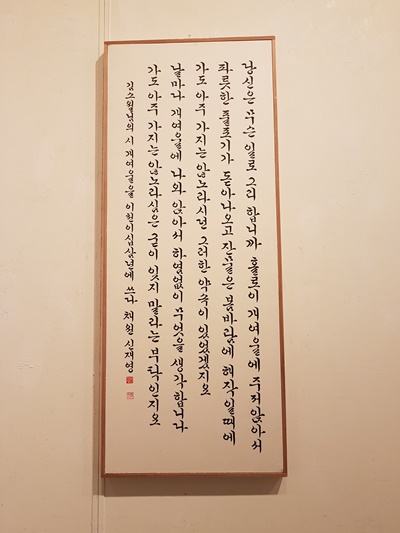 당신은 무슨 일로 그리 합니까 홀로이 개여울에 주저앉아서
파릇한 풀포기가 돋아나오고 잔물은 봄바람에 헤적일때에
가도 아주 가지는 않노라시던 그러한 약속이 있었겠지요
날마다 개여울에 나와 앉아서 하염없이 무엇을 생각합니다
가도 아주 가지는 않노라심은 굳이 잊지 말라는 부탁인지요
김소월님의 시 개여울을 이천이십삼년에 쓰다 채원 신재영